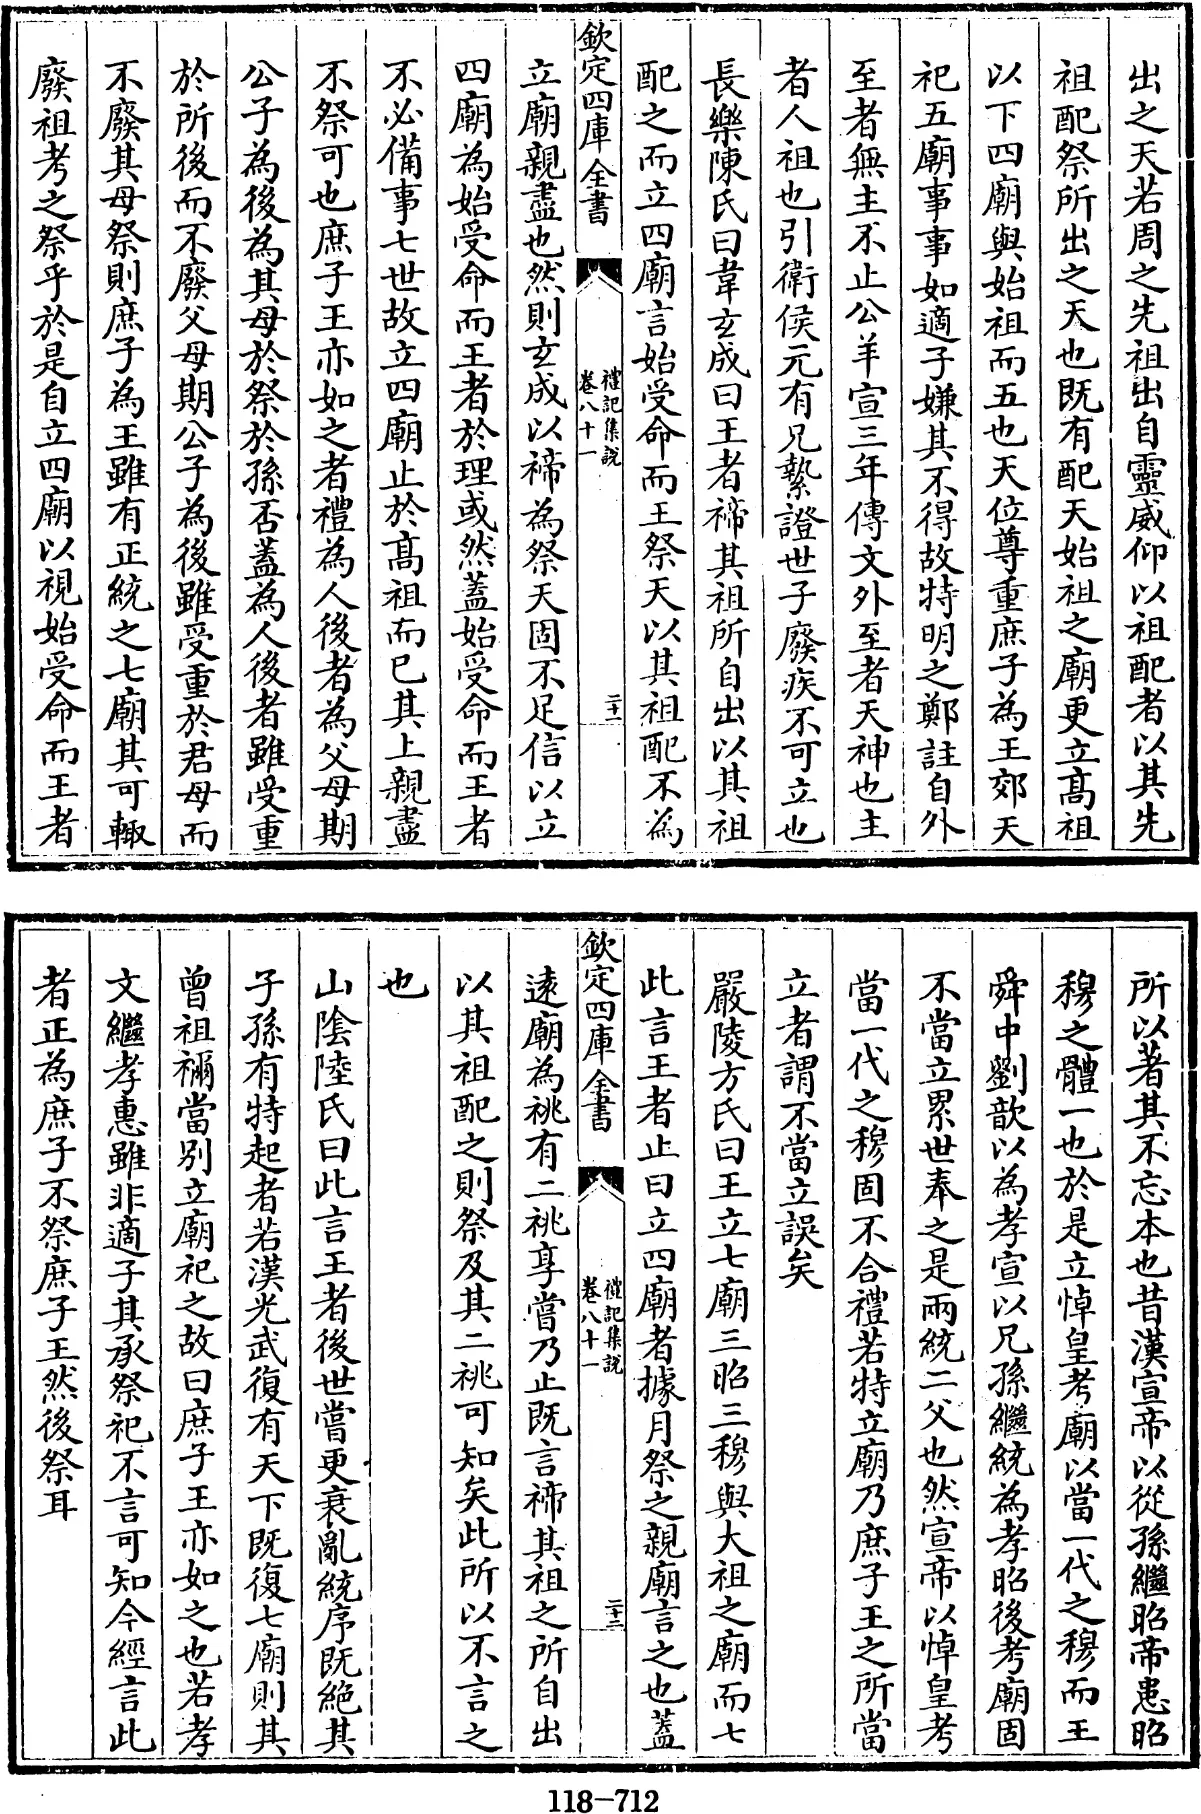 出之天若周之先祖出自靈威仰以祖配者以其先
祖配祭所出之天也既有配天始祖之廟更立髙祖
以下四廟與始祖而五也天位尊重庶子為王郊天
祀五廟事事如適子嫌其不得故特明之鄭註自外
至者無主不止公羊宣三年傳文外至者天神也主
者人祖也引衛侯元有兄縶證世子廢疾不可立也
長樂陳氏曰韋玄成曰王者禘其祖所自出以其祖
配之而立四廟言始受命而王祭天以其祖配不為
欽定四庫全書
禮記集說
卷八十一
二十一
立廟親盡也然則玄成以禘為祭天固不足信以立
四廟為始受命而王者於理或然蓋始受命而王者
不必備事七世故立四廟止於髙祖而已其上親盡
不祭可也庶子王亦如之者禮為人後者為父母期
公子為後為其母於祭於孫否蓋為人後者雖受重
於所後而不廢父母期公子為後雖受重於君母而
不廢其母祭則庶子為王雖有正統之七廟其可輙
廢祖考之祭乎於是自立四廟以視始受命而王者
所以著其不忘本也昔漢宣帝以從孫繼昭帝患昭
穆之體一也於是立悼皇考廟以當一代之穆而王
舜中劉歆以為孝宣以兄孫繼統為孝昭後考廟固
不當立累世奉之是兩統二父也然宣帝以悼皇考
當一代之穆固不合禮若特立廟乃庶子王之所當
立者謂不當立誤矣
嚴陵方氏曰王立七廟三昭三穆與大祖之廟而七
此言王者止曰立四廟者據月祭之親廟言之也蓋
欽定四庫全書
禮記集說
卷八十一
二十二
遠廟為祧有二祧享嘗乃止既言禘其祖之所自出
以其祖配之則祭及其二祧可知矣此所以不言之
也
山陰陸氏曰此言王者後世嘗更衰亂統序既絶其
子孫有特起者若漢光武復有天下既復七廟則其
曾祖禰當別立廟祀之故曰庶子王亦如之也若孝
文繼孝惠雖非適子其承祭祀不言可知今經言此
者正為庶子不祭庶子王然後祭耳
118-712